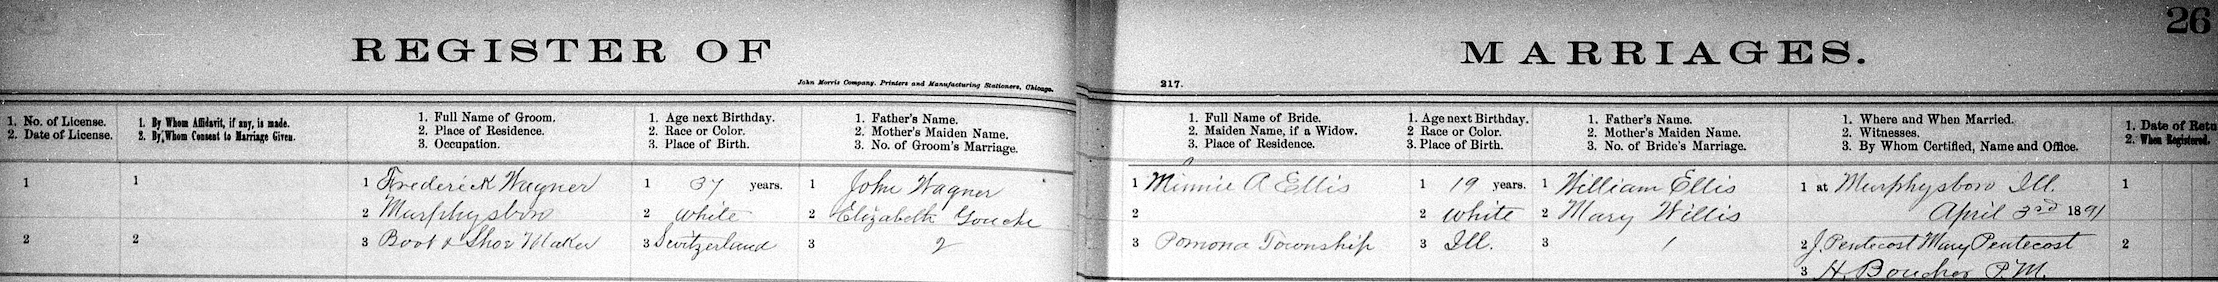 26
REGISTER OF MARRIAGES.
John Morris Company, Printers and Manufacturing Stationers, Chicago.
217.
1. No. of License.
2. Date of License.
1. By Whom Affidavit, if any, is made.
2. By Whom Consent to Marriage Given.
1. Full Name of Groom.
2. Place of Residence.
3. Occupation.
1. Age next Birthday.
2. Race or Color.
3. Place of Birth.
1. Father's Name.
2. Mother's Maiden Name.
3. No. of Groom's Marriage.
1. Full Name of Bride.
2. Maiden Name, if a Widow.
3. Place of Residence.
1. Age next Birthday.
2 Race or Color.
3. Place of Birth.
1. Father's Name.
2. Mother's Maiden Name.
3. No. of Bride's Marriage.
1. Where and When Married.
2. Witnesses.
3. By Whom Certified, Name and Office.
1. Date of Retu
2. When Registered.
1
2
1
2
1 Frederick Wagner
2 Murphysboro
3 Boot & Shoe Maker
1 37 years.
2 White
3 Switzerland
1 John Wagner
2 Elizabeth
3 2
1 Minnie A Ellis
2
3 Pomona Township
1 19 years.
2 White
3 Ill.
1 William Ellis
2 Mary Willis
3 1
1 at Murphysboro Ill.
April 3rd 1891
2 J. Pentecost Mary Pentecost
3 H. Boucher P.M.
1
2